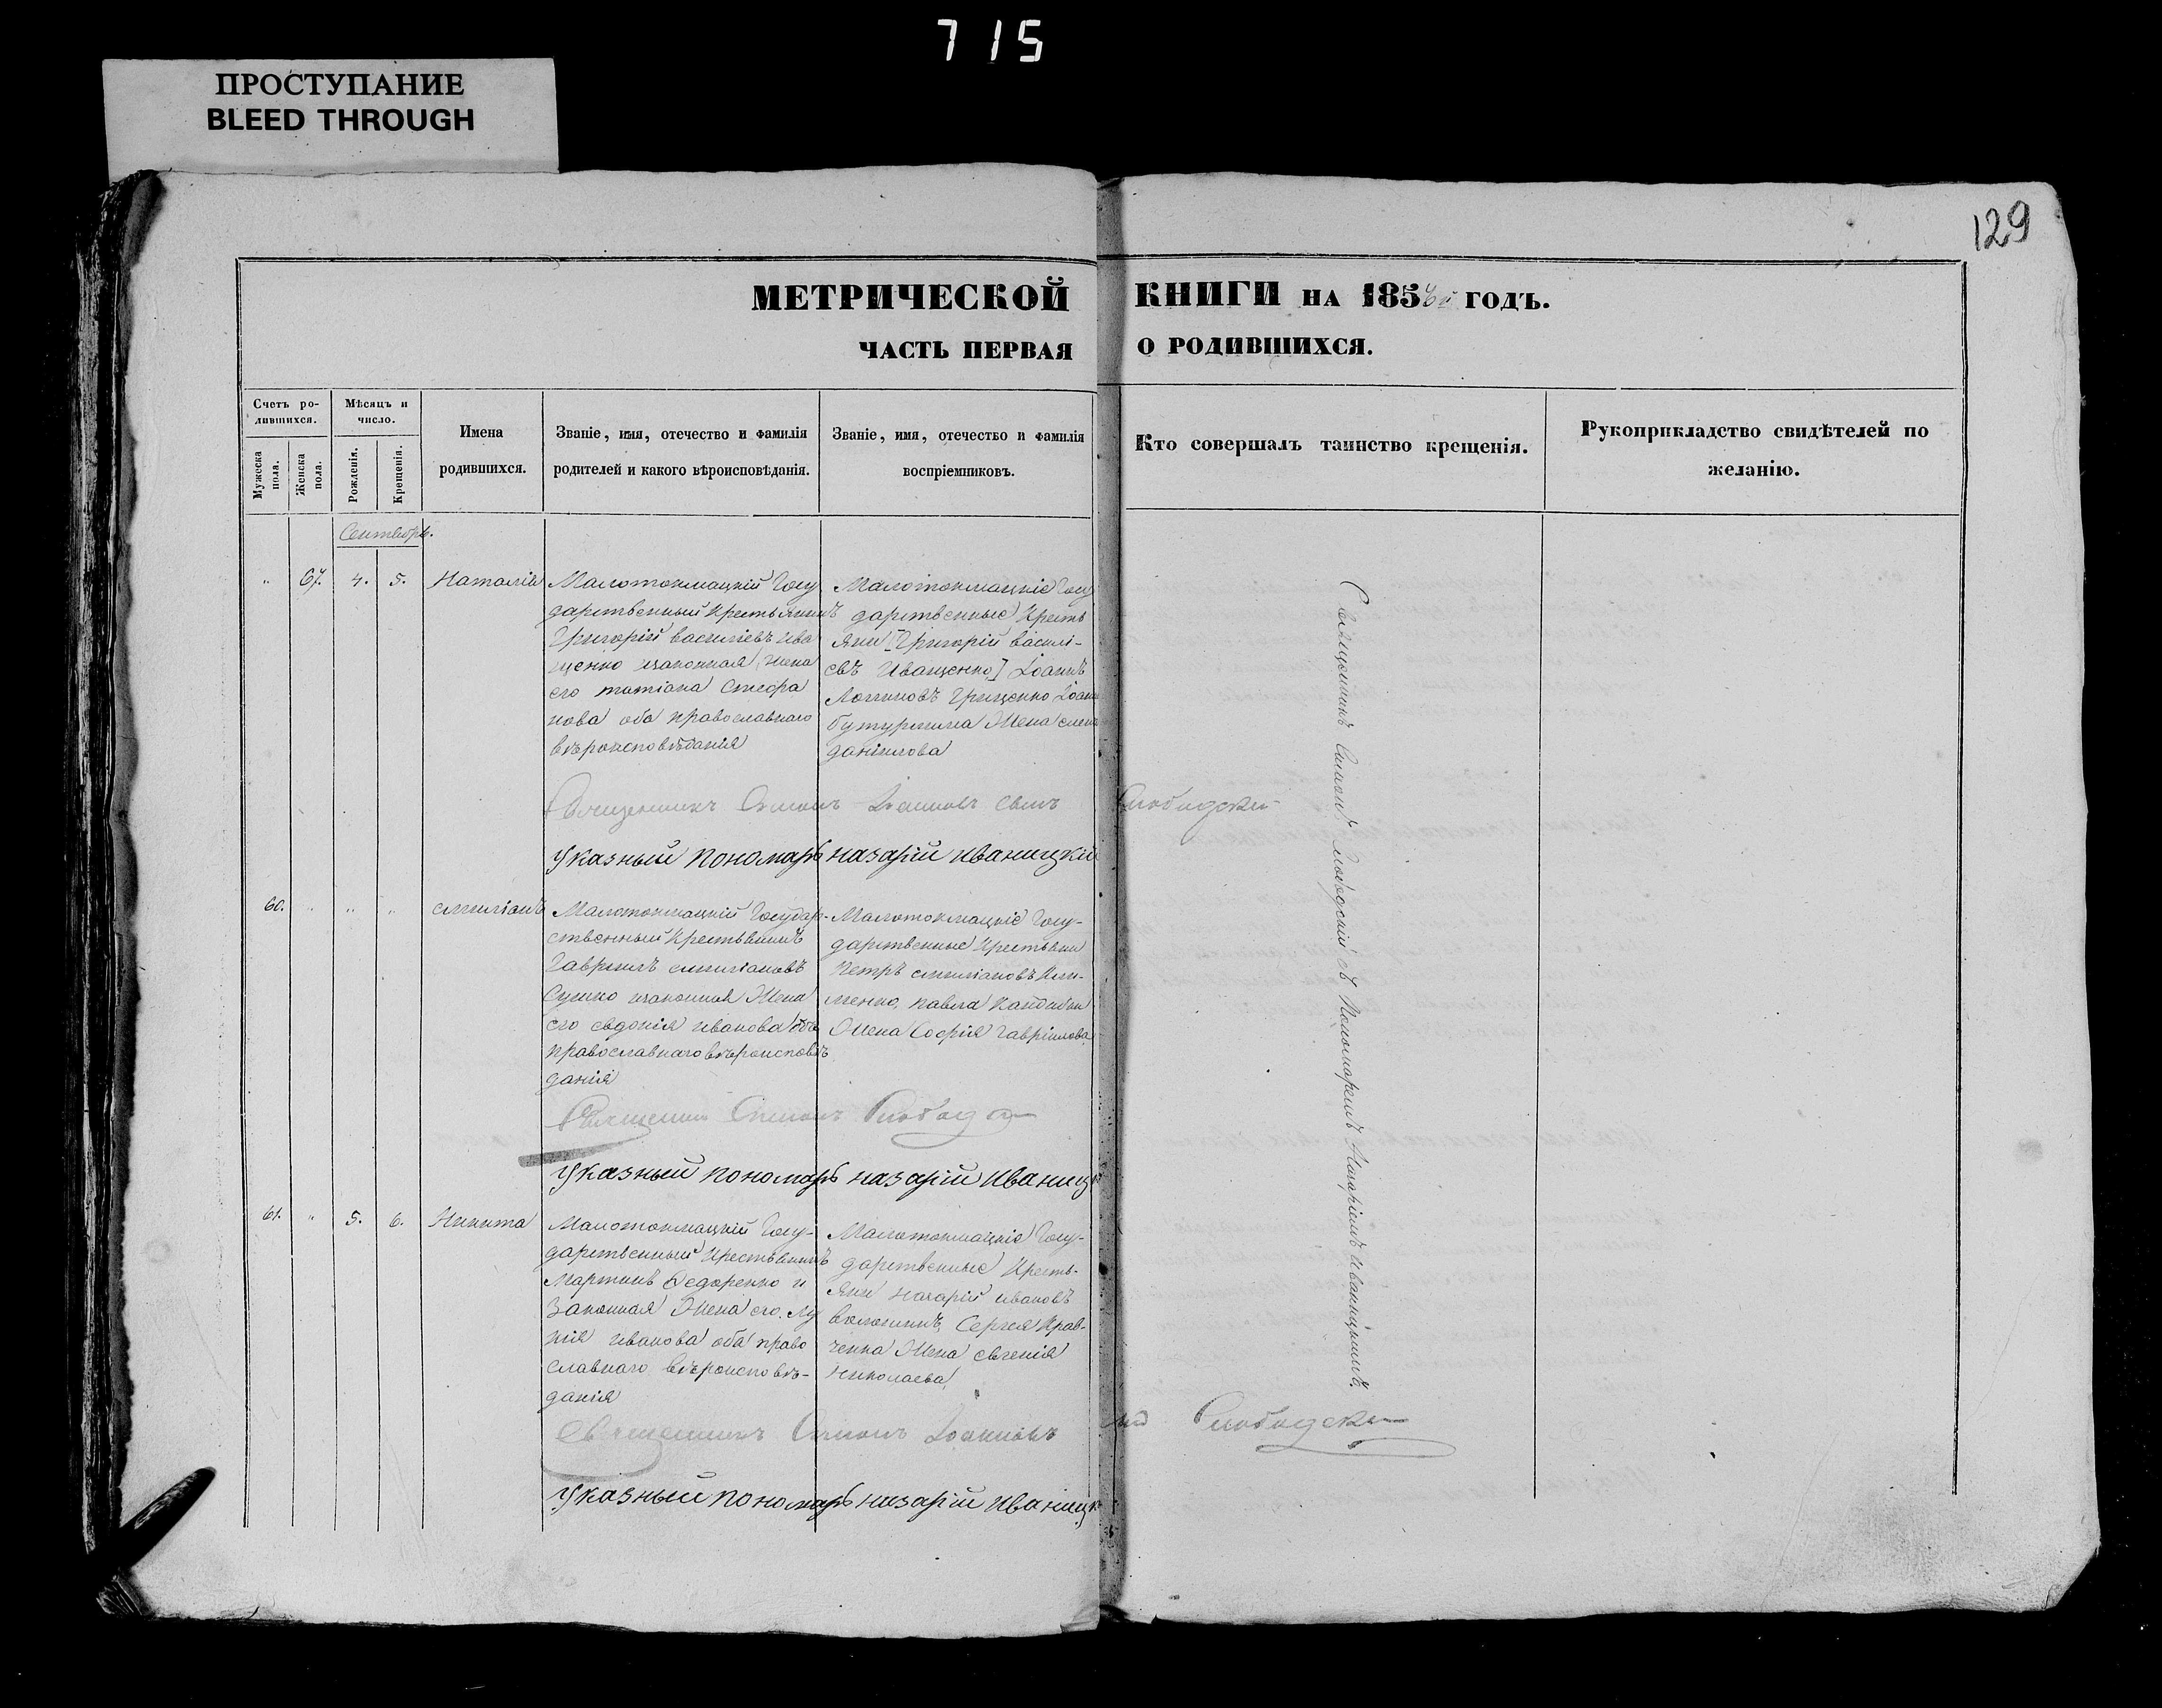 715
ПРОСТУПАНИЕ
BLEED THROUGH
129
МЕТРИЧЕСКОЙ КНИГИ НА 185 й ГОДЪ.
ЧАСТЬ ПЕРВАЯ О РОДИВШИХСЯ.
Счетъ ро-
дившихся.
Мужеска
пола.
Женска
пола.
Мѣсяцъ и
число.
Рожденія.
Крещенія.
Имена
родившихся.
Званіе, имя, отечество и фамилія
родителей и какого вѣроисповѣданія.
Званіе, имя, отечество и фамилія
воспріемниковъ.
Кто совершалъ таинство крещенія.
Рукоприкладство свидѣтелей по
желанію.
Сентябрь.
" 67. 4. 5. Наталія
Малотокмацкій Госу
дарственный Крестьянинъ
Григорій васильевъ ива
щенко изаконная жена
его татіана Стефа
нова оба православнаго
вѣроисповѣданія
Малотокмацкіе Госу
дарственные Кресть
яни [Григорій василі-
евъ Иващенко] Іоаннъ
Логиновъ Грищенко Іоанн
бутурлина Жена елена
даніилова
Священникъ Симонъ Іоанновъ сынъ Слободскій
Указный пономарь назарій иваницкій
60. " " " емиліанъ
Малотокмацкій Государ-
ственный Крестьянинъ
Гавріилъ емиліановъ
Сушко изаконная Жена
его евдокія иванова оба
православнаго вѣроисповѣ
данія
Малотокмацкіе Госу-
дарственные Крестьяни
Петръ емиліановъ Кли-
менко, павла
Жена Софія гавріилова
Священник Симонъ Слободск
Указный пономарь назарій иваницк
61. " 5. 6. Никита
Малотокмацкій Госу-
дарственный Крестьянинъ
Мартинъ Федоренко и
Законная Жена его
иванова оба право
славнаго вѣроисповѣ-
данія
Малотокмацкіе Госу-
дарственные Кресть-
яни назарій ивановъ
Сергея Крав-
ченка Жена евгенія
николаева
Священникъ Симонъ Іоанновъ Слободскій
Указный пономарь назарій иваницк
Священникъ Симонъ Слободскій съ Пономаремъ Назаріемъ Иваницкимъ.